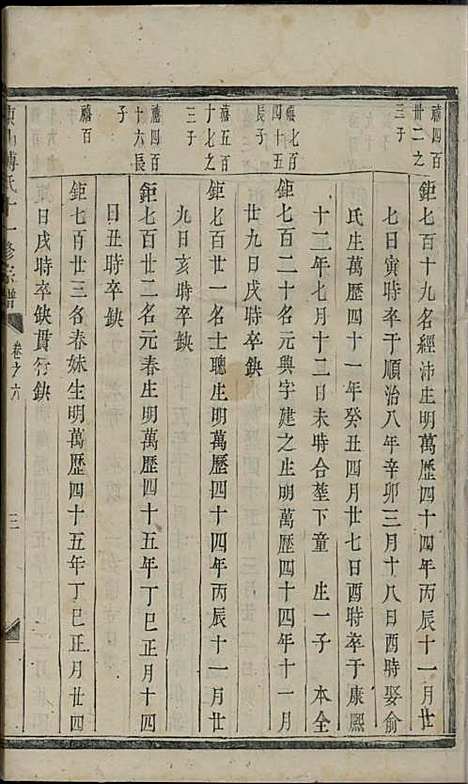 禧四百
卅二之
三子
鉅七百十九名經沛生明萬歷四十四年丙辰十一月廿
七日寅時卒于順治八年辛卯三月十八日酉時娶俞
氏生萬歷四十一年癸丑四月廿七日酉時卒于康熙
十二年七月十二日未時合塟下童 生一子 本全
禧七百
四十五
長子
鉅七百二十名元興字建之生明萬歷四十四年十一月
廿九日戌時卒缺
禧五百
十七之
三子
鉅七百廿一名士聰生明萬歷四十四年丙辰十一月廿
九日亥時卒缺
禧四百
十六長
子
鉅七百廿二名元春生明萬歷四十五年丁巳正月十四
日丑時卒缺
禧百
鉅七百廿三名春妹生明萬歷四十五年丁巳正月廿四
日戌時卒缺貫行缺
傅氏十一修宗譜
卷之六
三